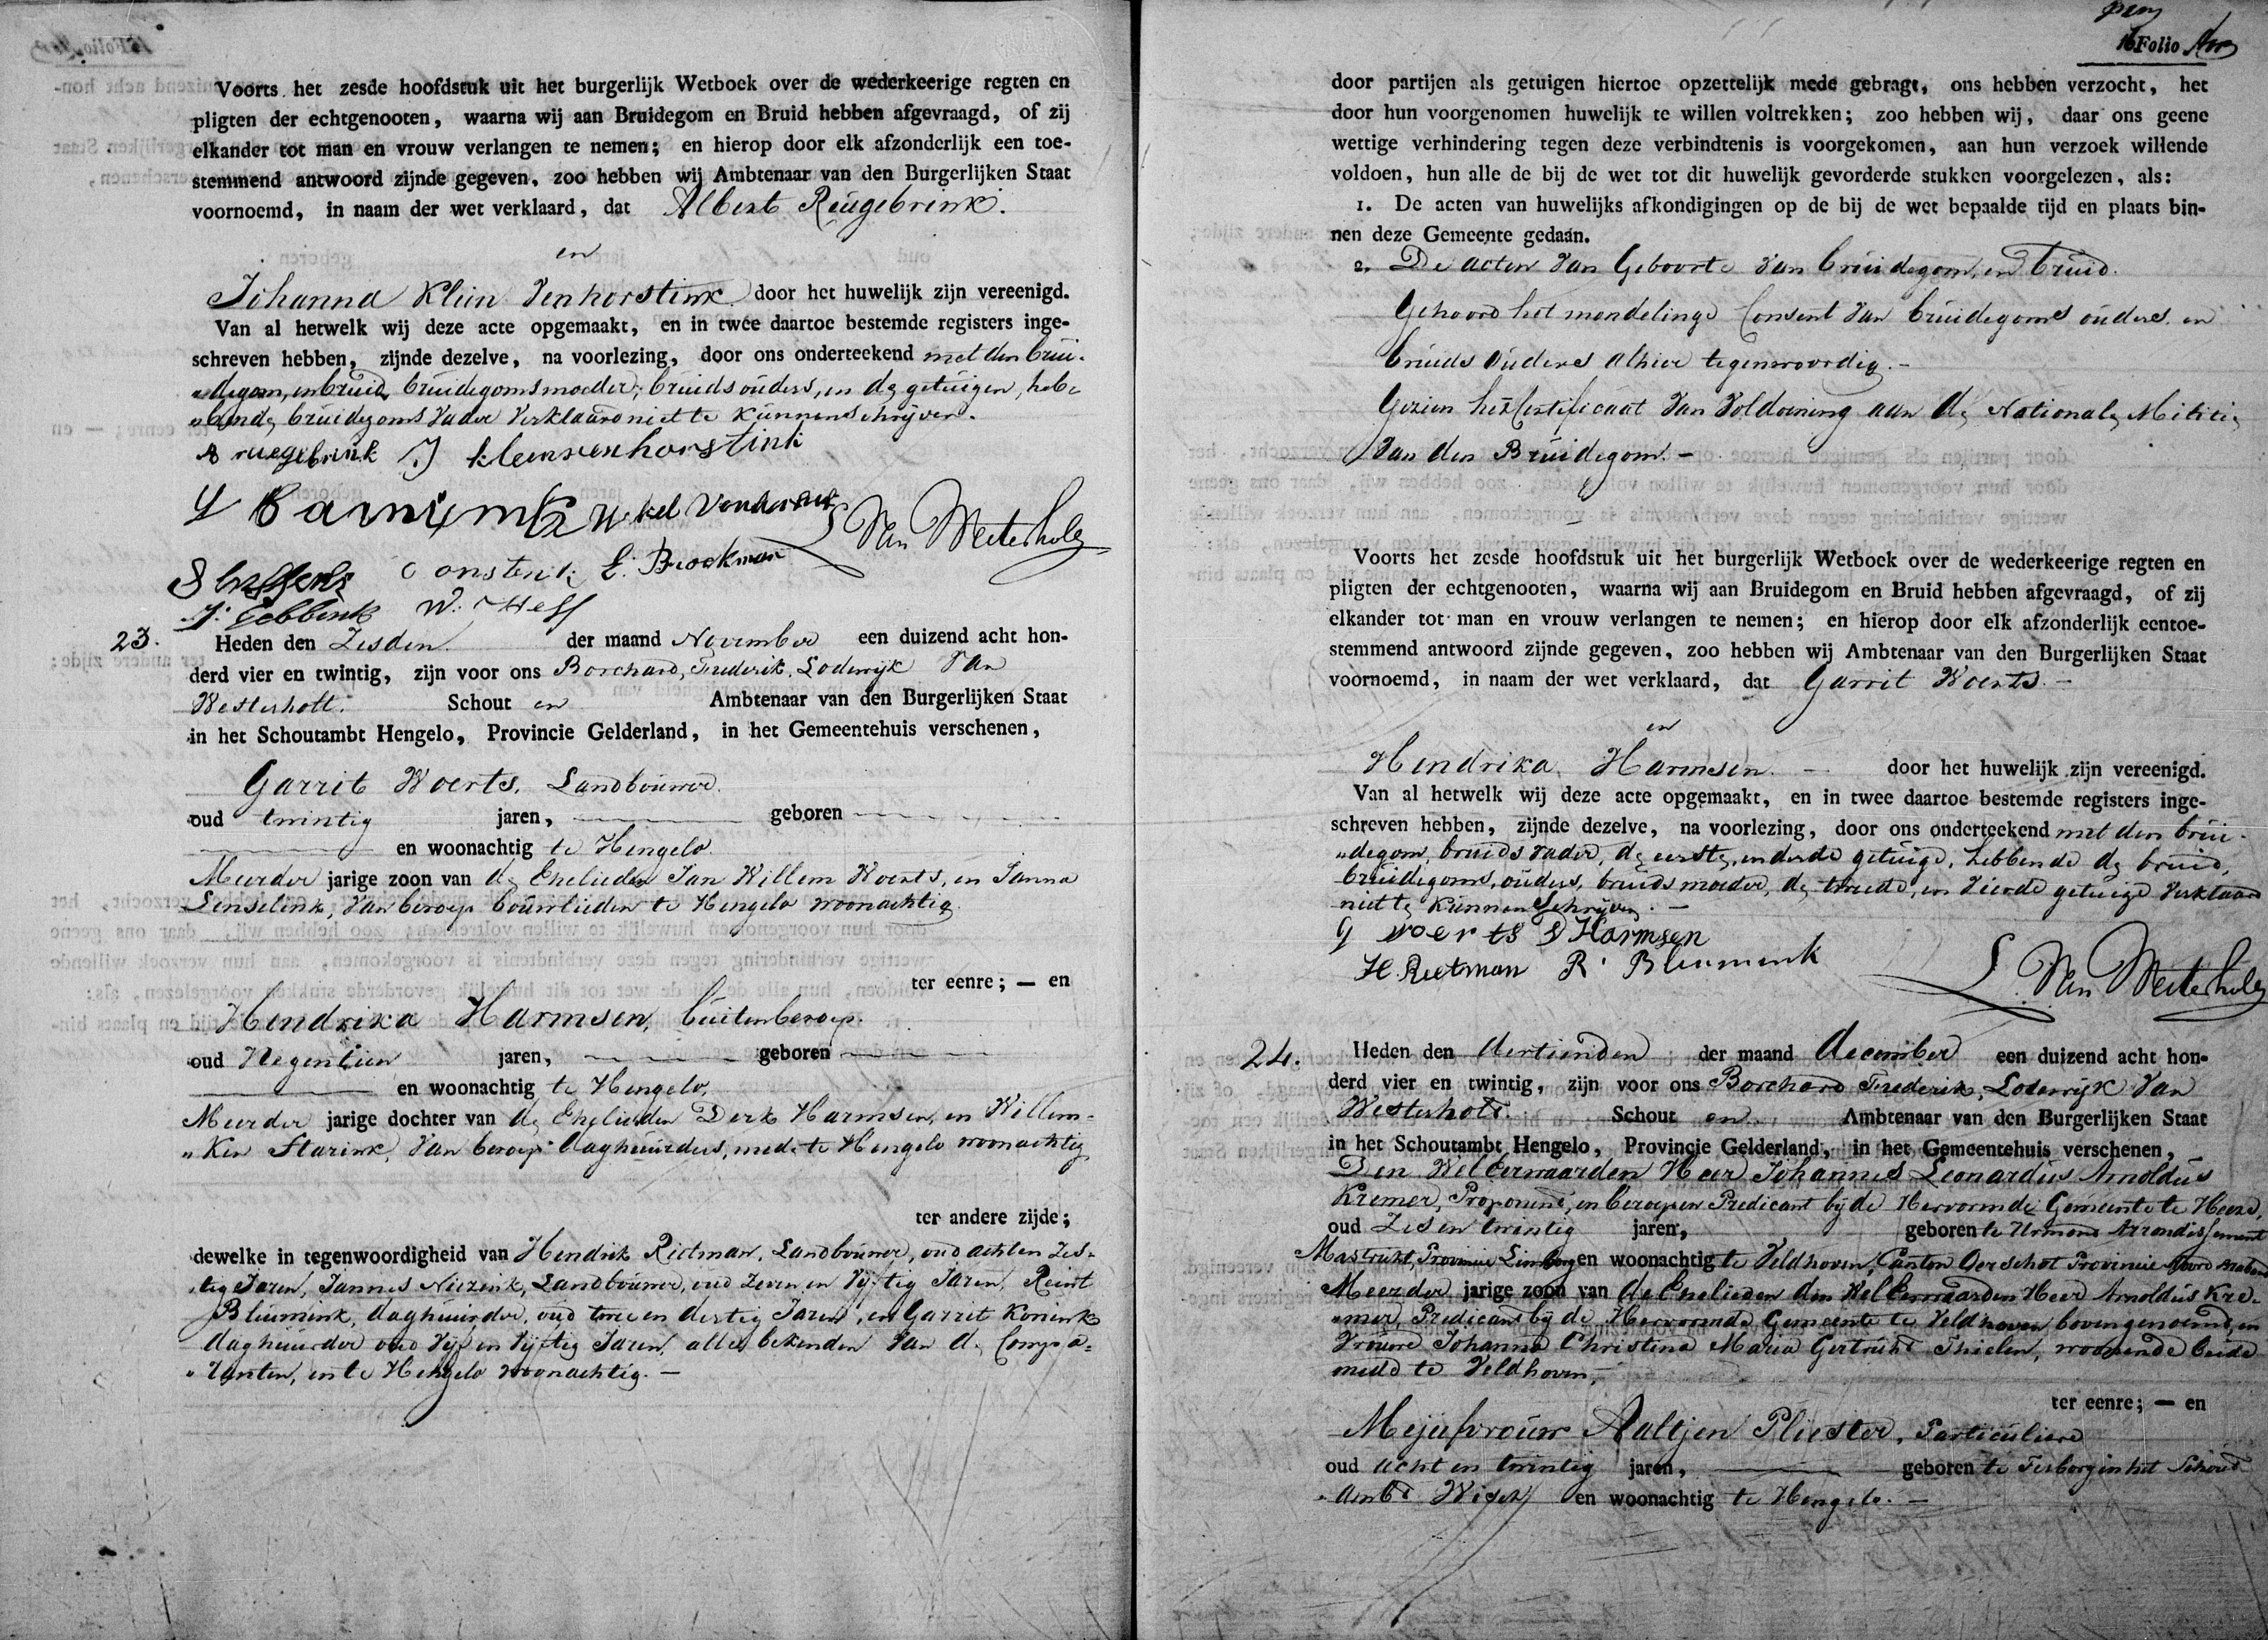 Voorts het zesde hoofdstuk uit het burgerlijk Wetboek over de wederkeerige regten en
pligten der echtgenooten, waarna wij aan Bruidegom en Bruid hebben afgevraagd, of zij
elkander tot man en vrouw verlangen te nemen; en hierop door elk afzonderlijk een toe-
stemmend antwoord zijnde gegeven, zoo hebben wij Ambtenaar van den Burgerlijken Staat
voornoemd, in naam der wet verklaard, dat Albert Reugebrink.
en
Johanna Klein Venhorstink door het huwelijk zijn vereenigd.
Van al hetwelk wij deze acte opgemaakt, en in twee daartoe bestemde registers inge-
schreven hebben, zijnde dezelve, na voorlezing, door ons onderteekend met den brui-
"degom, en bruid, bruidegoms moeder, bruids ouders, en de getuigen, heb-
"bende bruidegoms Vader Verklaard niet te kunnen schrijven.
A ruegebrink J kleinvenhorstink
B. van Westerholt
E. Brockman
J. Gebbink W. Hess
23. Heden den Zesden der maand November een duizend acht hon-
derd vier en twintig, zijn voor ons Borchard, Frederik, Lodewyk Van
Westerholt. Schout en Ambtenaar van den Burgerlijken Staat
in het Schoutambt Hengelo, Provincie Gelderland, in het Gemeentehuis verschenen,
Garrit Woerts, Landbouwer.
oud twintig jaren, geboren
en woonachtig te Hengelo.
Meerder jarige zoon van de Ehelieden Jan Willem Woerts, en Janna
Lenselink, van beroep bouwlieden te Hengelo woonachtig.
ter eenre; — en
Hendrika Harmsen, buitenberoep.
oud Negentien jaren, geboren
en woonachtig te Hengelo,
Meerder jarige dochter van de Ehelieden Derk Harmsen, en Willem-
"ken Starink, Van beroep daghuurders, mede te Hengelo woonachtig
ter andere zijde;
dewelke in tegenwoordigheid van Hendrik Rietman, Landbouwer, oud acht en Zes-
"tig Jaren, Jannes Niezink, Landbouwer, oud Zeven en Vyftig Jaren, Reint
Bluemink, daghuurder, oud twee en dertig Jaren, en Garrit Konink
daghuurder oud Vyf en Vyftig Jaren, alle bekenden Van de Compa-
"ranten, en te Hengelo woonachtig. —
16 Folio
door partijen als getuigen hiertoe opzettelijk mede gebragt, ons hebben verzocht, het
door hun voorgenomen huwelijk te willen voltrekken; zoo hebben wij, daar ons geene
wettige verhindering tegen deze verbindtenis is voorgekomen, aan hun verzoek willende
voldoen, hun alle de bij de wet tot dit huwelijk gevorderde stukken voorgelezen, als:
1. De acten van huwelijks afkondigingen op de bij de wet bepaalde tijd en plaats bin-
nen deze Gemeente gedaan.
2. De acten Van Geboorte Van bruidegom, en bruid.
Gehoord het mondelinge Consent Van bruidegoms ouders en
bruids ouders alhier tegenwoordig. —
Gezien het Certificaat Van Voldoening aan de Nationale Militie
Van den Bruidegom. —
Voorts het zesde hoofdstuk uit het burgerlijk Wetboek over de wederkeerige regten en
pligten der echtgenooten, waarna wij aan Bruidegom en Bruid hebben afgevraagd, of zij
elkander tot man en vrouw verlangen te nemen; en hierop door elk afzonderlijk eentoe-
stemmend antwoord zijnde gegeven, zoo hebben wij Ambtenaar van den Burgerlijken Staat
voornoemd, in naam der wet verklaard, dat Garrit Woerts —
en
Hendrika Harmsen. — door het huwelijk zijn vereenigd.
Van al hetwelk wij deze acte opgemaakt, en in twee daartoe bestemde registers inge-
schreven hebben, zijnde dezelve, na voorlezing, door ons onderteekend met den brui-
"degom, bruids vader, de eerste, en derde getuige, hebbende de bruid,
bruidegoms, ouders, bruids moeder, de tweede, en Vierde getuige Verklaard
niet te kunnen schrijven. —
G woerts D Harmsen
H. Reetman R. Bluemink
B. Van Westerholt
24. Heden den dertienden der maand december een duizend acht hon-
derd vier en twintig, zijn voor ons Borchard Frederik, Lodewyk Van
Westerholt. Schout en Ambtenaar van den Burgerlijken Staat
in het Schoutambt Hengelo, Provincie Gelderland, in het Gemeentehuis verschenen,
Den WelEerwaarden Heer Johannes Leonardus Arnoldus
Kremer, Proponent, en beroepen Predicant by de Hervormde Gemeente te Heerd,
oud Zes en twintig jaren, geboren te Urmond Arrondissement
Mastricht, Provincie Limburg en woonachtig te Veldhoven, Canton Oerschot Provincie Noord Braband
Meerder jarige zoon van de Ehelieden den WelEerwaarden Heer Arnoldus Kre-
"mer, Predicant by de Hervormde Gemeente te Veldhoven bovengenoemd, en
Vrouwe Johanna Christina Maria Gertruid Thielen, woonende beide
mede te Veldhoven,
ter eenre; — en
Mejufvrouw Aaltjen Pliester, Particuliere
oud acht en twintig jaren, geboren te Terborg in het Schout
"ambt Wisch en woonachtig te Hengelo. —